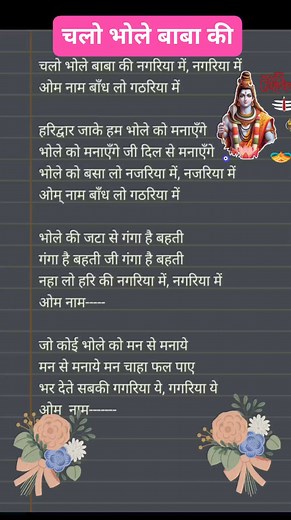 चलो भोले बाबा की
चलो भोले बाबा की नगरिया में, नगरिया में
ओम नाम बाँध लो गठरिया में
हरिद्वार जाके हम भोले को मनाएँगे
भोले को मनाएँगे जी दिल से मनाएँगे
भोले को बसा लो नजरिया में, नजरिया में
ओम् नाम बाँध लो गठरिया में
भोले की जटा से गंगा है बहती
गंगा है बहती जी गंगा है बहती
नहा लो हरि की नगरिया में, नगरिया में
ओम नाम-----
जो कोई भोले को मन से मनाये
मन से मनाये मन चाहा फल पाए
भर देते सबकी गगरिया ये, गगरिया ये
ओम  नाम-------